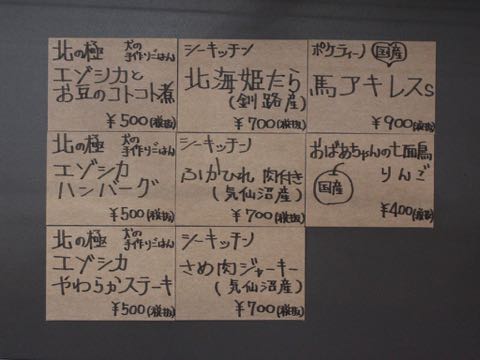 北の極 犬の手作りごはん
エゾシカと
お豆のコトコト煮
¥500(税抜)
シーキッチン
北海姫たら
(釧路産)
¥700(税抜)
ポケティーノ 国産
馬アキレスS
¥900(税抜)
北の極 犬の手作りごはん
エゾシカ
ハンバーグ
¥500(税抜)
シーキッチン
ふかひれ 肉付き
(気仙沼産)
¥700(税抜)
おばあちゃんの七面鳥
国産 りんご
¥400(税抜)
北の極 犬の手作りごはん
エゾシカ
やわらかステーキ
¥500(税抜)
シーキッチン
さめ肉ジャーキー
(気仙沼産)
¥700(税抜)